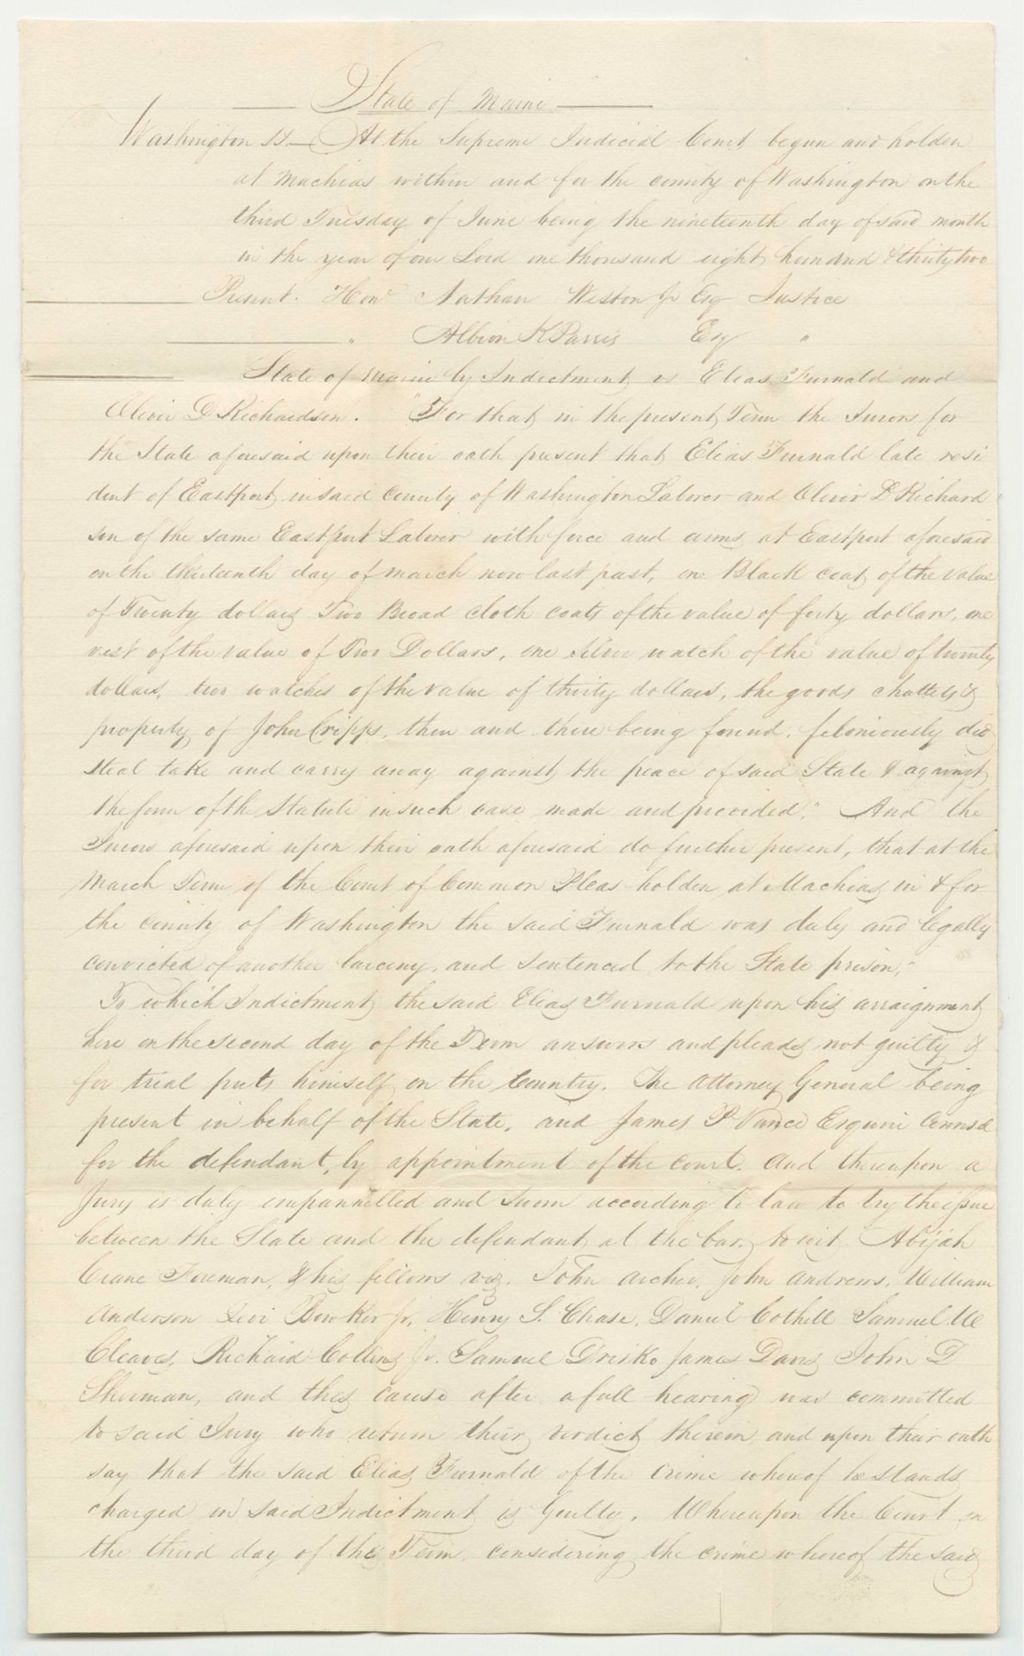 State of Maine
Washington ss. At the Supreme Judicial Court begun and holden
at Machias within and for the county of Washington on the
third Tuesday of June being the nineteenth day of said month
in the year of our Lord one thousand eight hundred & thirty two
Present. Hon. Nathan Weston Jr Esq Justice
" Albion K Parris Esq "
State of Maine by Indictment vs Elias Furnald and
Oliver D Richardson. "For that in the present Term the Jurors for
the State aforesaid upon their oath present that Elias Furnald late resi
dent of Eastport in said County of Washington Laborer and Oliver D Richard
son of the same Eastport Laborer with force and arms at Eastport aforesaid
on the thirteenth day of march now last past, one Black coat of the value
of Twenty dollars Two Broad cloth coats of the value of forty dollars, one
vest of the value of Two Dollars, one silver watch of the value of twenty
dollars, two watches of the value of thirty dollars, the goods chattels &
property of John Cripps, then and there being found, feloniously did
steal take and carry away against the peace of said State & against
the form of the Statute in such case made and provided." And the
Jurors aforesaid upon their oath aforesaid do further present, that at the
March Term of the Court of Common Pleas holden at Machias in & for
the county of Washington the said Furnald was duly and legally
convicted of another larceny, and sentenced to the State prison."
To which Indictment the said Elias Furnald upon his arraignment
here on the second day of the Term answers and pleads not guilty &
for trial puts himself on the Country. The Attorney General being
present in behalf of the State, and James P Vance Esquire Counsel
for the defendant, by appointment of the court. And thereupon a
Jury is duly empannelled and sworn according to law to try the issue
between the State and the defendant at the bar, to wit, Abijah
Crane Foreman, & his fellows viz. John Archer, John Andrews, William
Anderson Levi Bowker Jr, Henry S. Chase, Daniel Cothell Samuel W
Cleaves, Richard Collins Jr. Samuel Drisko James Davis John D
Sherman, and this cause after a full hearing was committed
to said Jury who return their verdict therein and upon their oath
say that the said Elias Furnald of the crime whereof he stands
charged in said Indictment is Guilty. Whereupon the Court on
the third day of the Term, considering the crime whereof the said